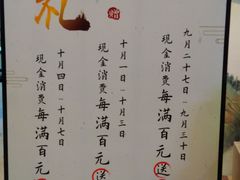 礼
九月二十七日-九月三十日
现金消费每满百元送
十月一日-十月三日
现金消费每满百元送
十月四日-十月七日
现金消费每满百元送